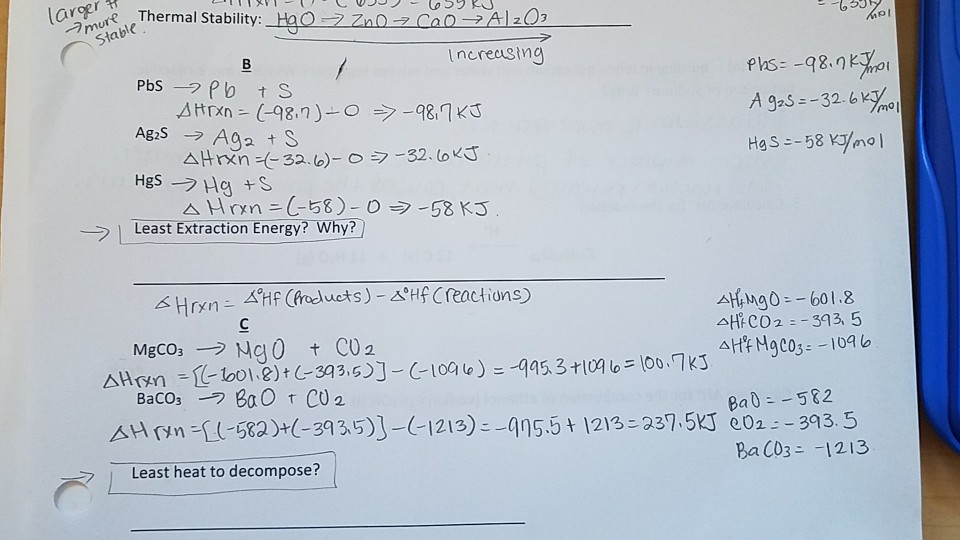 larger #
→ more
stable.
Thermal Stability: HgO → ZnO → CaO → Al₂O₃
Increasing
B
PbS → Pb + S
ΔHrxn = (-98.7) - 0 ⇒ -98.7 KJ
Ag₂S → Ag₂ + S
ΔHrxn = (-32.6) - 0 ⇒ -32.6 KJ.
HgS → Hg + S
ΔHrxn = (-58) - 0 ⇒ -58 KJ.
PbS = -98.7 KJ/mol
Ag₂S = -32.6 KJ/mol
HgS = -58 KJ/mol
→ Least Extraction Energy? Why?
ΔHrxn = Δ°Hf (Products) - Δ°Hf (reactions)
C
MgCO₃ → MgO + CO₂
ΔHrxn = [(-1601.8) + (-393.5)] - (-1096) = -995.3 + 1096 = 100.7 KJ
BaCO₃ → BaO + CO₂
ΔHrxn = [(-582) + (-393.5)] - (-1213) = -975.5 + 1213 = 237.5 KJ
ΔH°f MgO = -601.8
ΔH°f CO₂ = -393.5
ΔH°f MgCO₃ = -1096
BaO = -582
CO₂ = -393.5
BaCO₃ = -1213
→ Least heat to decompose?